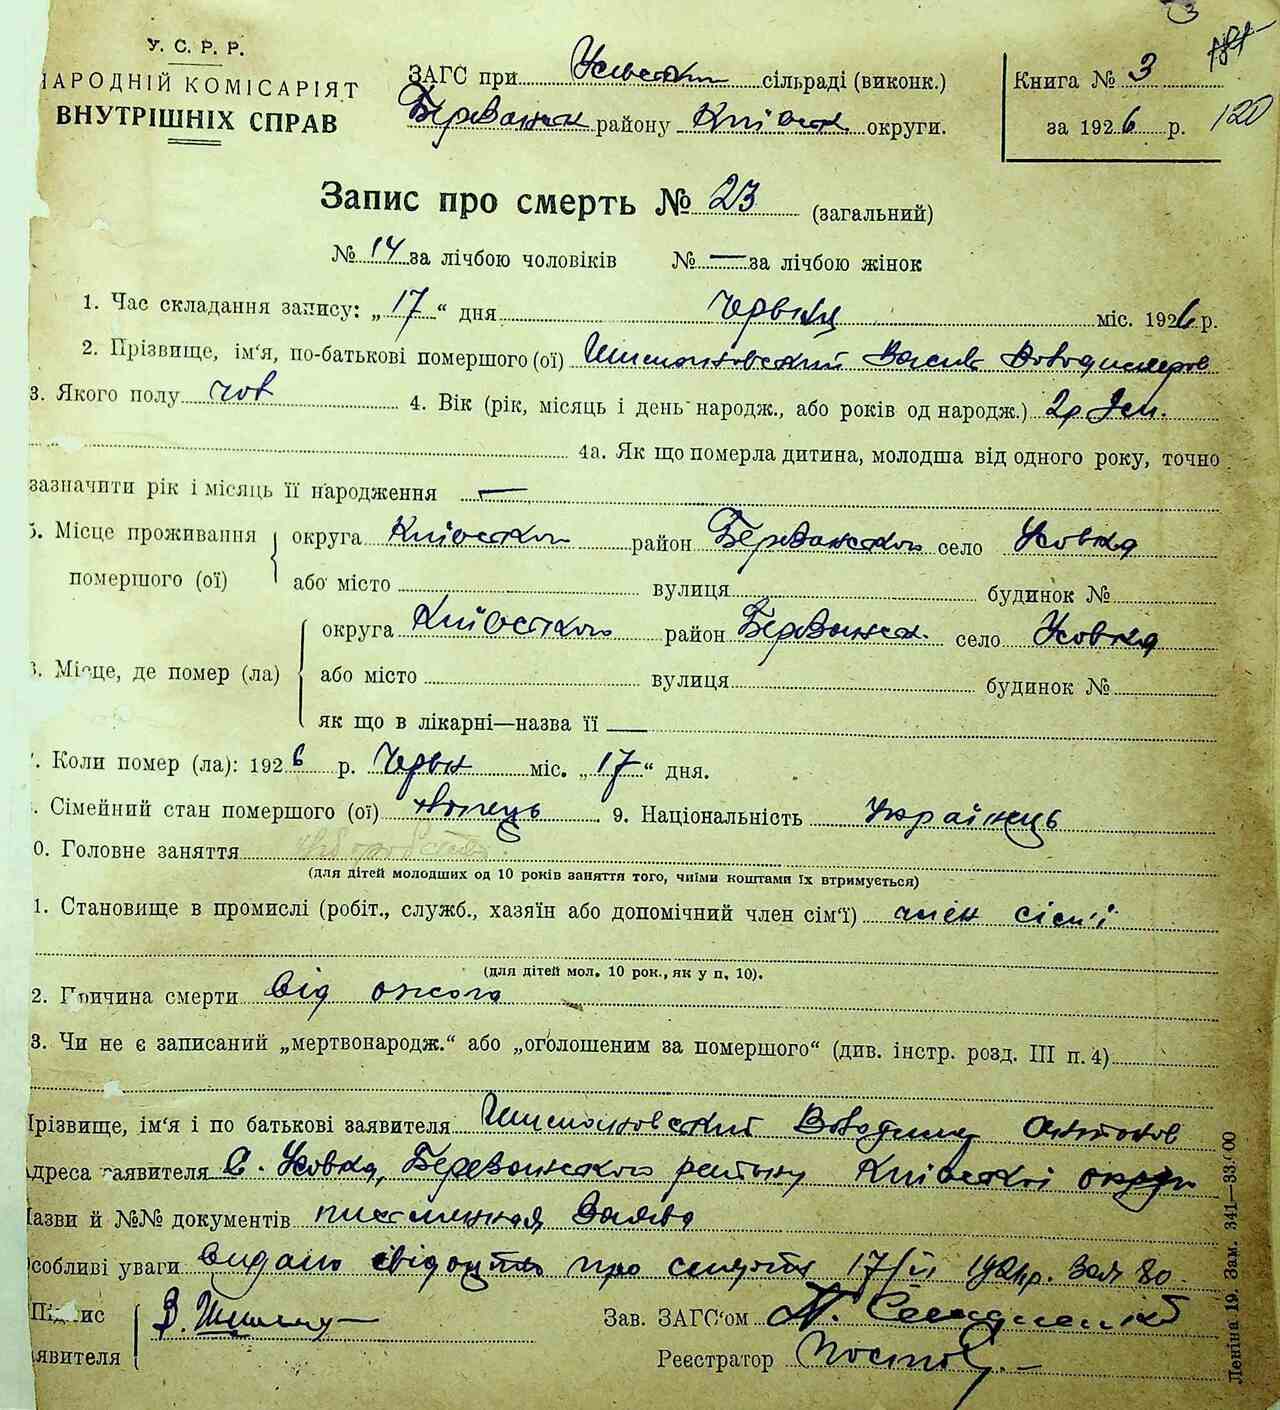 У. С. Р. Р.
НАРОДНІЙ КОМІСАРІЯТ
ВНУТРІШНІХ СПРАВ
ЗАГС при Усівском сільраді (виконк.)
Березанськ району Київськ округи.
Книга № 3
за 1926 р.
120
Запис про смерть № 23 (загальний)
№ 14 за лічбою чоловіків № — за лічбою жінок
1. Час складання запису: „17“ дня Червня міс. 1926 р.
2. Прізвище, ім'я, по-батькові помершого (ої) Шимановский Василь Володимиров
3. Якого полу чов 4. Вік (рік, місяць і день народж., або років од народж.) 2р
4а. Як що померла дитина, молодша від одного року, точно
зазначити рік і місяць її народження —
5. Місце проживання помершого (ої) округа Київском район Березанском село Усовка
або місто вулиця будинок №
6. Місце, де помер (ла) округа Київского район Березанск. село Усовка
або місто вулиця будинок №
як що в лікарні—назва її —
7. Коли помер (ла): 1926 р. Червн міс. „17“ дня.
8. Сімейний стан помершого (ої) 9. Національність Українець
10. Головне заняття хліборобство
(для дітей молодших од 10 років заняття того, чиїми коштами їх втримується)
11. Становище в промислі (робіт., служб., хазяїн або допомічний член сім'ї) член сімї
(для дітей мол. 10 рок., як у п. 10).
12. Причина смерти від ожога
13. Чи не є записаний „мертвонародж.“ або „оголошеним за помершого“ (див. інстр. розд. III п. 4)
Прізвище, ім'я і по батькові заявителя Шимановский Володимир Антонов
Адреса заявителя С. Усовка, Березанского району Київскої округи
Назви й №№ документів письменная Заява
Особливі уваги видано свідоцтво про смерть 17/VI 192 р. За № 80
Підпис заявителя В. Шиман
Зав. ЗАГС'ом
Реєстратор
Леніна 19. Зам. 341—33.000